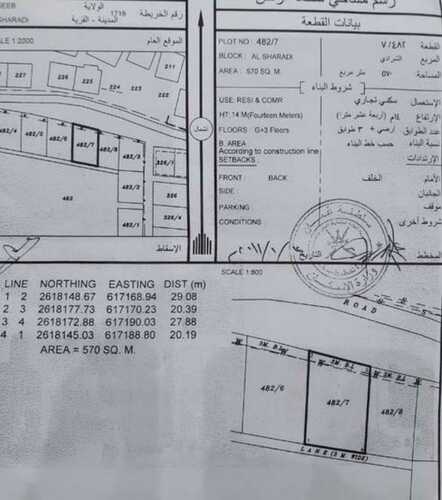 SEEB
الولاية
رقم الخريطة
1719
المدينة - القرية
SHARADI
بيانات القطعة
SCALE 1:2000
الموقع العام
PLOT NO : 482/7
٧/٤٨٢
القطعة
BLOCK : AL SHARADI
الشرادي
المربع
AREA : 570 SQ. M.
٥٧٠ متر مربع
المساحة
شروط البناء
USE: RESI & COMR
سكني تجاري
HT: 14 M(Fourteen Meters)
١٤م (أربعة عشر مترا)
الإرتفاع
FLOORS : G+3 Floors
أرضي + ٣ طوابق
عدد الطوابق
B. AREA
According to construction line
حسب خط البناء
نسبة البناء
SETBACKS :
الإرتدادات
FRONT : BACK
الخلف
الأمام
SIDE :
الجانبان
PARKING
موقف
CONDITIONS
شروط أخرى
المخطط
التاريخ
224
223
222
221
227
226
225
224
211
شمال
482/6
482/7
482/8
326/1
326
326/4
482
الإسقاط
SCALE 1:800
LINE NORTHING EASTING DIST (m)
1 2 2618148.67 617168.94 29.08
2 3 2618177.73 617170.23 20.39
3 4 2618172.88 617190.03 27.88
4 1 2618145.03 617188.80 20.19
AREA = 570 SQ. M.
ROAD
482/6
482/7
482/8
LANE (3 M. WIDE)